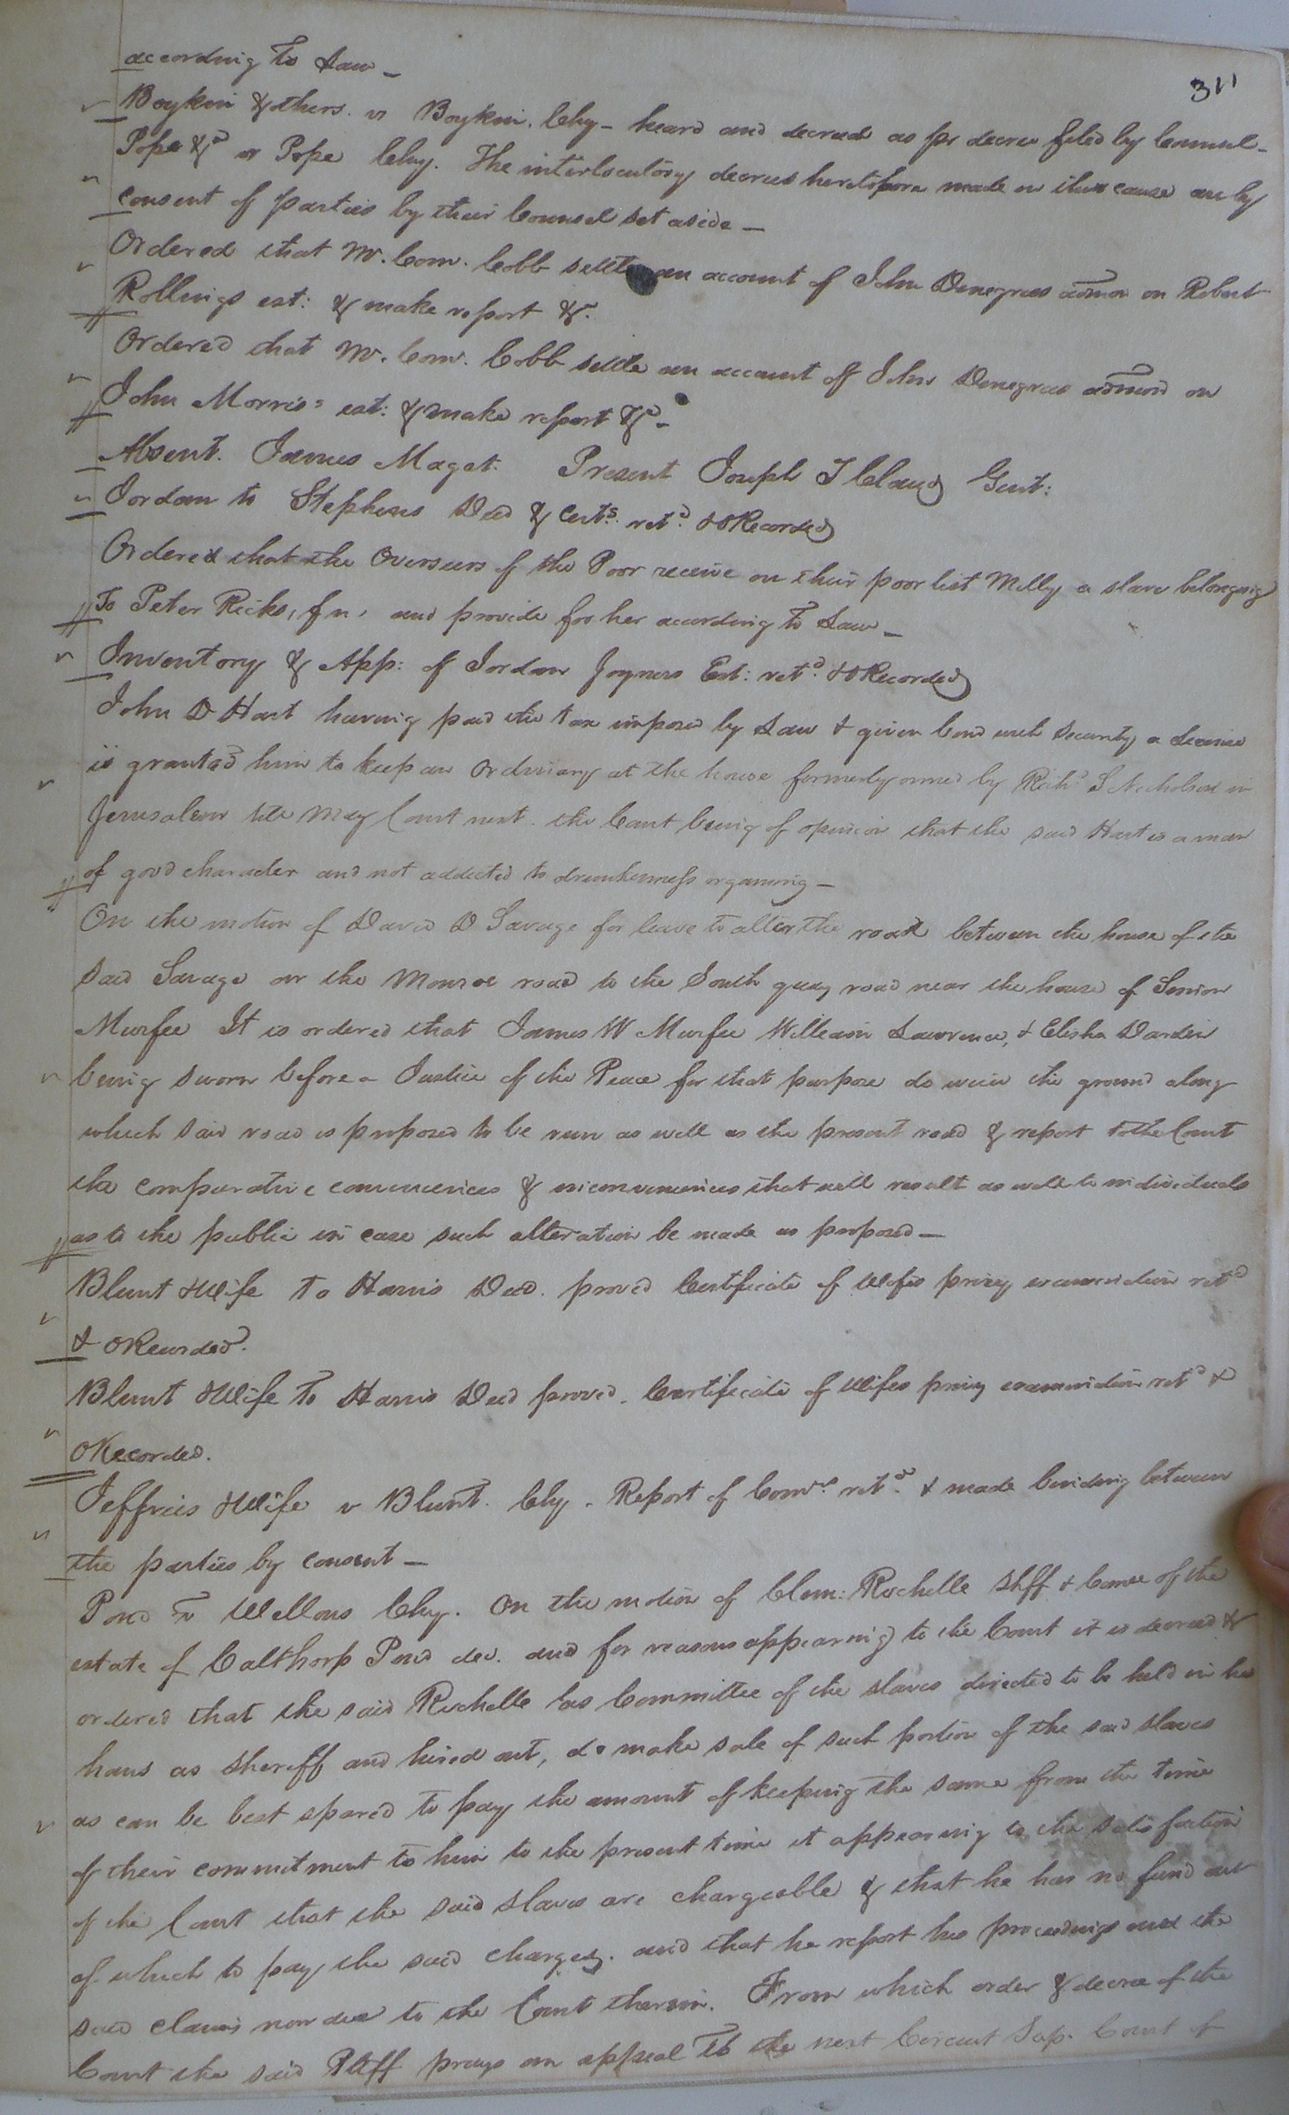 311
according to Law—
Boykin & others. vs Boykin. Chy— heard and decreed as pr decree filed by Counsel—
Pope &c vs Pope Chy. The interlocutory decrees heretofore made in this cause are by
consent of parties by their Counsel set aside—
Ordered that Mr. Com. Cobb settle an account of John Denegres admon on Robert
Rollings est: & make report &c.
Ordered that Mr. Com. Cobb settle an account of John Denegres admon on
John Morris's est: & make report &c—
Absent. James Maget. Present Joseph T Claud Gent:
Jordan to Stephens Deed & Certs. retd. & ORecorded
Ordered that the Overseers of the Poor receive on their poor list Milly a slave belonging
To Peter Ricks, fn, and provide for her according to Law—
Inventory & App: of Jordan Joyners Est: retd. & ORecorded
John D Hart having paid the tax imposed by Law & given bond with security a license
is granted him to keep an Ordinary at the house formerly owned by Richd S Nicholson in
Jerusalem till May Court next. the Court being of opinion that the said Hart is a man
of good character and not addicted to drunkenness or gaming—
On the motion of David D Savage for leave to alter the road between the house of the
said Savage on the Monroe road to the South quay road near the house of Simon
Murfee It is ordered that James W Murfee William Lawrence, & Elisha Darden
being sworn before a Justice of the Peace for that purpose do view the ground along
which said road is proposed to be run as well as the present road & report to the Court
the comparative conveniences & inconveniences that will result as well to individuals
as to the public in case such alteration be made as proposed—
Blunt & Wife To Harris Deed. proved Certificate of Wifes privy examination retd
& ORecorded.
Blunt & Wife To Harris Deed proved. Certificate of Wifes privy examination retd &
ORecorded.
Jeffries & Wife v Blunt. Chy. Report of Comrs retd. & made binding between
the parties by consent—
Pond v Wellons Chy. On the motion of Clem: Rochelle Shff & Comee of the
estate of Calthorp Pond dec. and for reasons appearing to the Court it is decreed &
ordered that the said Rochelle as Committee of the slaves directed to be held in his
hands as Sheriff and hired out, do make sale of such portion of the said slaves
as can be best spared to pay the amount of keeping the same from the time
of their commitment to him to the present time it appearing to the satisfaction
of the Court that the said slaves are chargeable & that he has no fund out
of which to pay the said charges. and that he report his proceedings and the
said claims now due to the Court therein. From which order & decree of the
Court the said Pltff prays an appeal to the next Circuit Sup. Court of